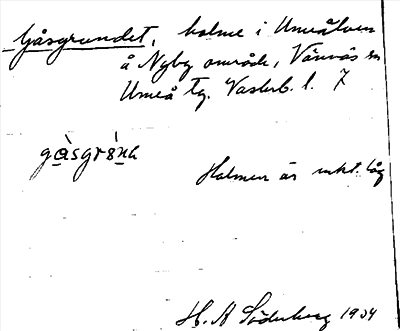 Gåsgrundet, holme i Umeälven
å Nyby område, Vännäs sn
Umeå tg. Västerb. l. 7
Holmen är mkt. låg
H. A Söderberg 1934